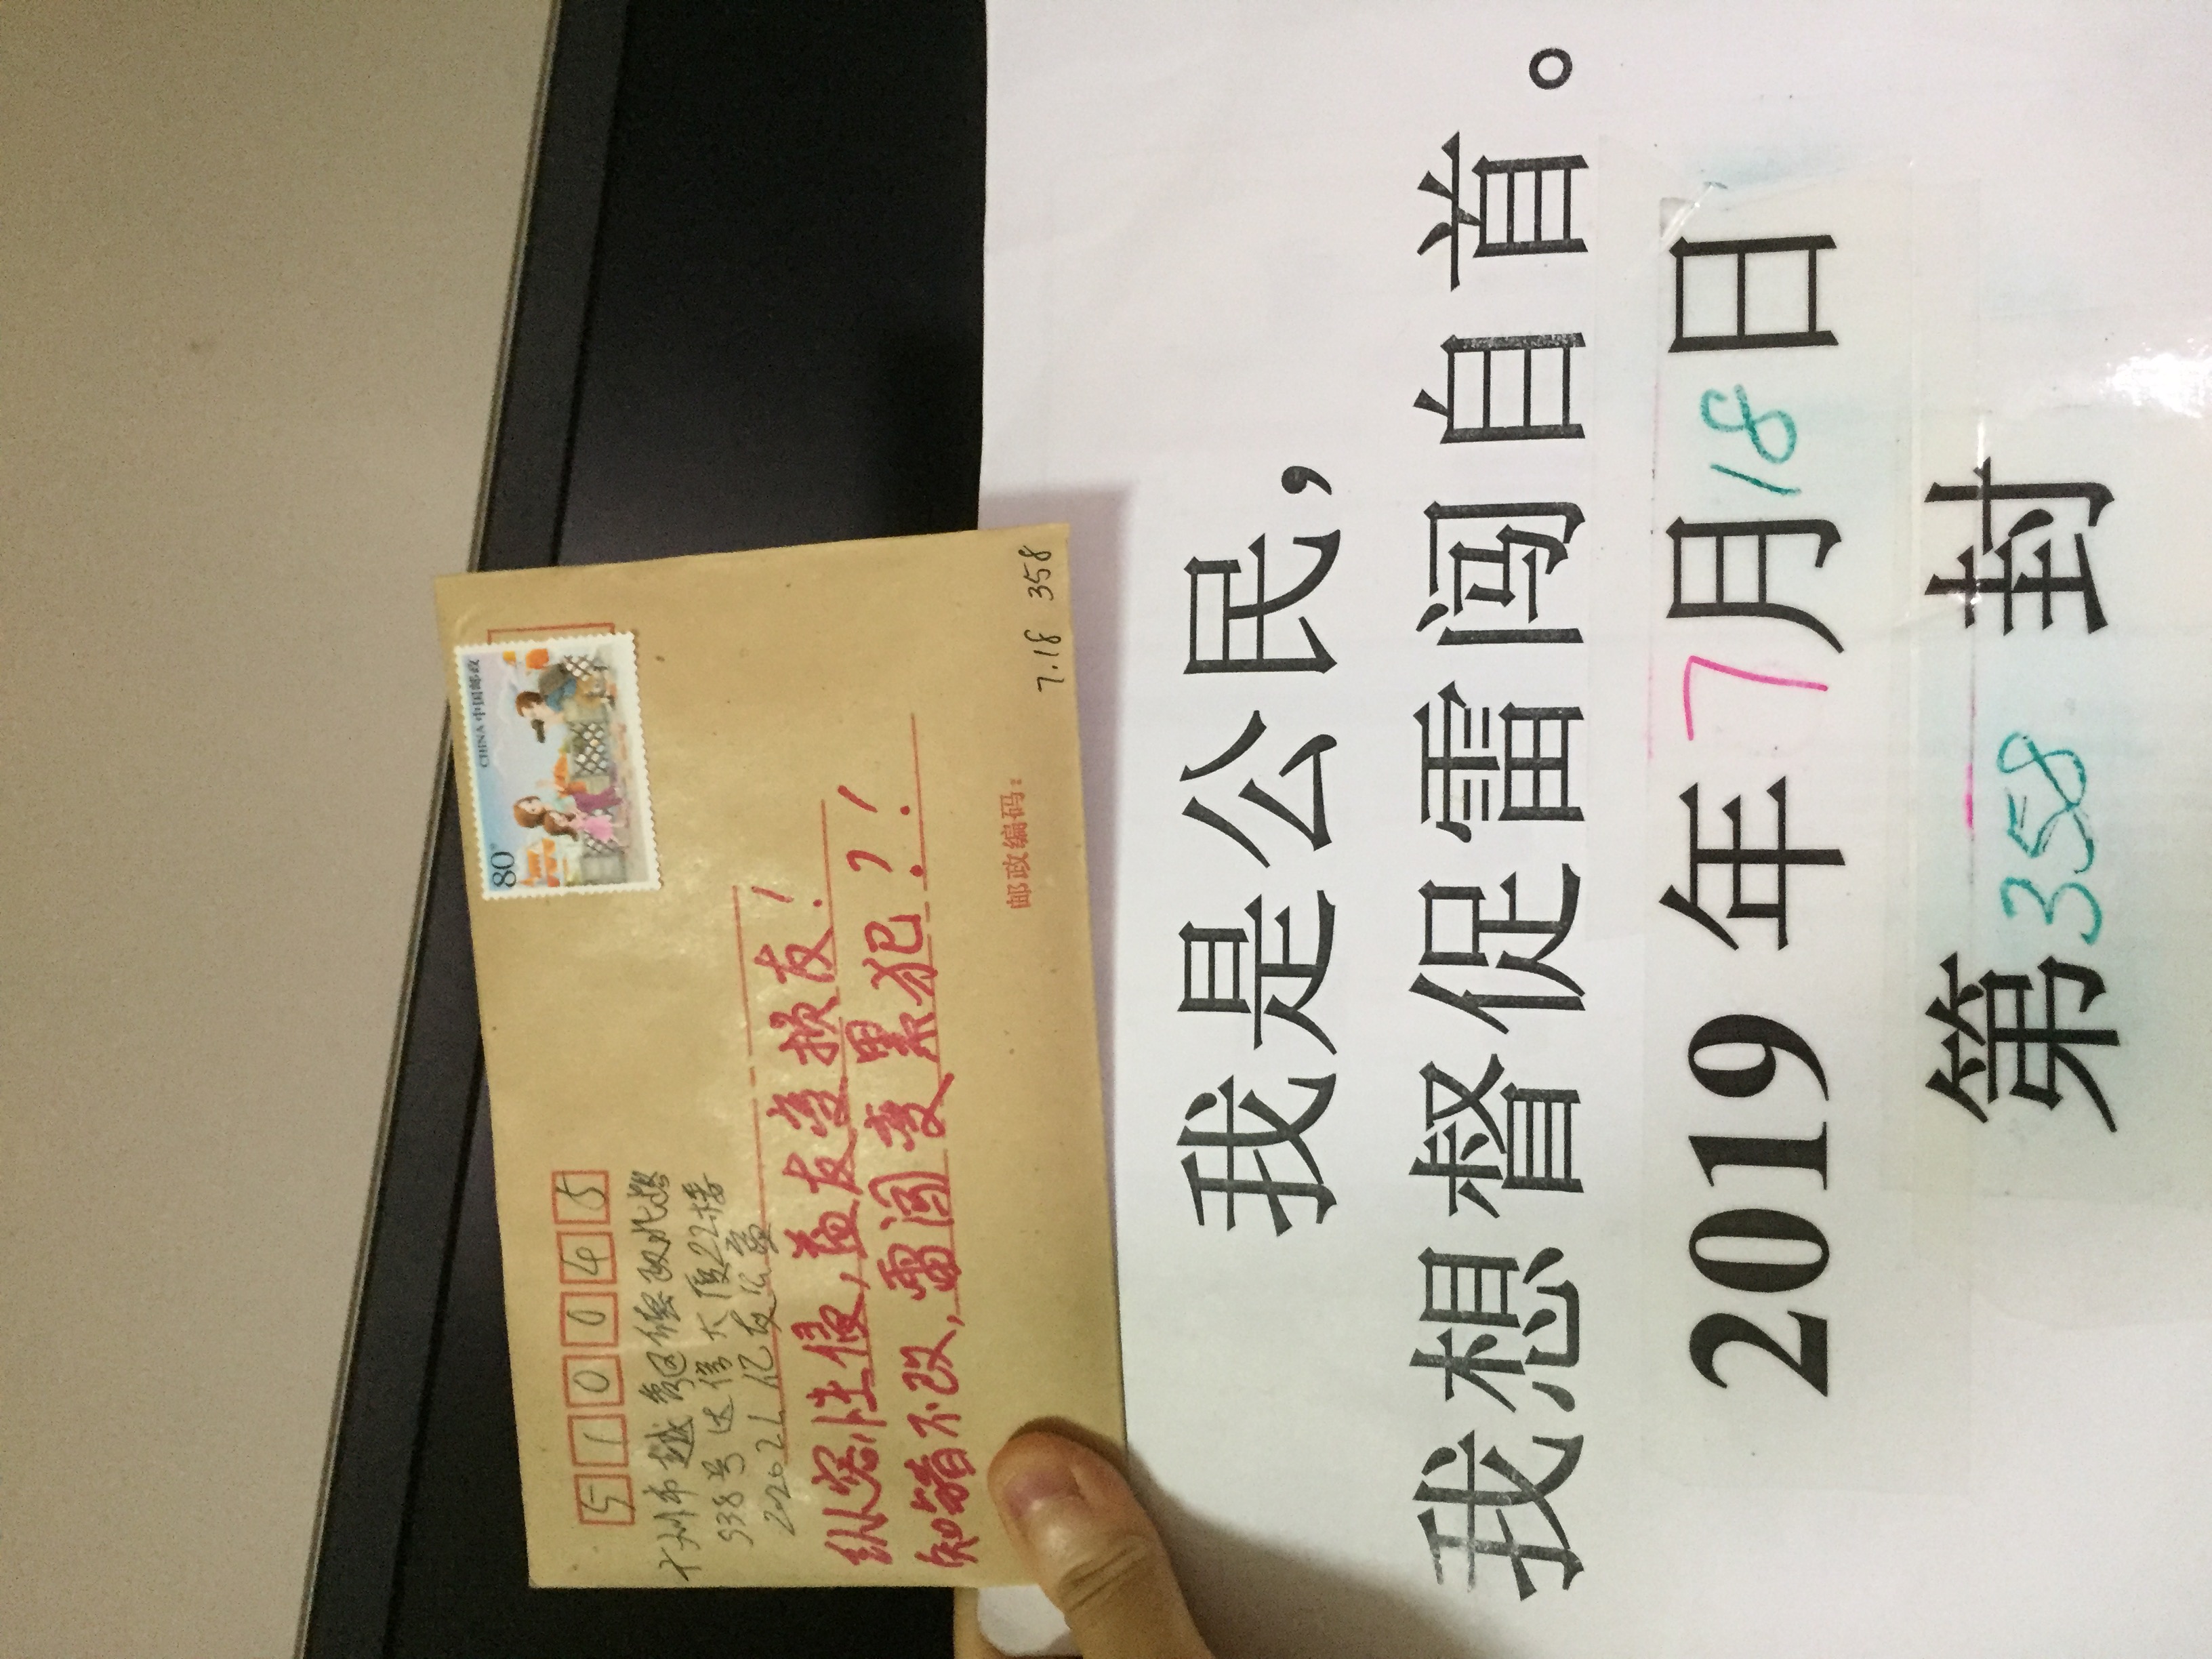 80分
CHINA 中国邮政
510045
广州市越秀区德政北路
538号达信大厦22楼
亿友公益
纵容性侵,益友变损友!
知错不改,雷闯变累犯?!
邮政编码:
7.18 358
我是公民,
我想督促雷闯自首。
2019年7月18日
第358封